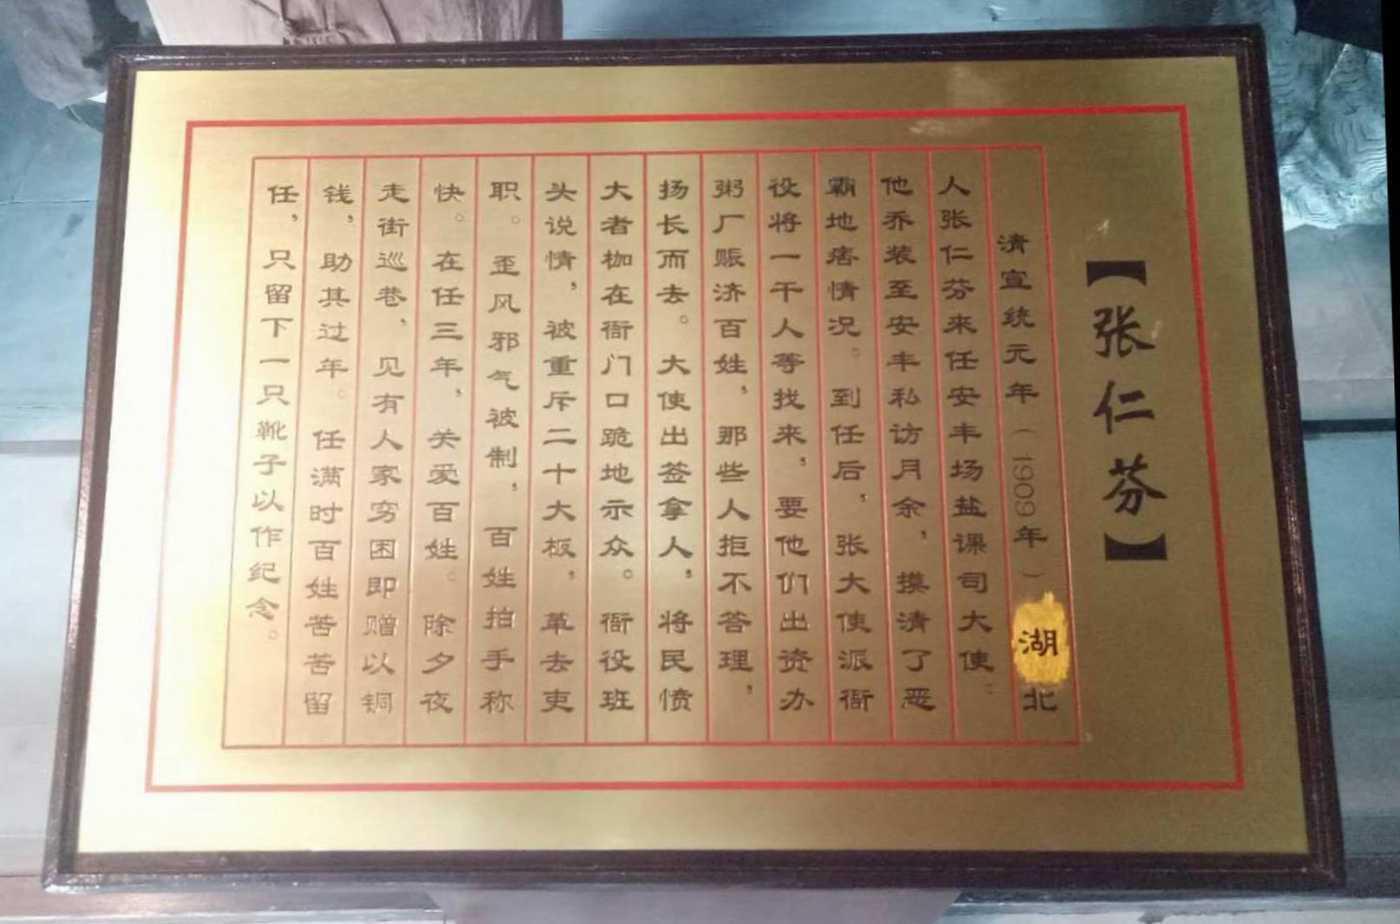 【张仁芬】
清宣统元年（1909年）湖北
人张仁芬来任安丰场盐课司大使。
他乔装至安丰私访月余，摸清了恶
霸地痞情况。到任后，张大使派衙
役将一干人等找来，要他们出资办
粥厂赈济百姓，那些人拒不答理，
扬长而去。大使出签拿人，将民愤
大者枷在衙门口跪地示众。衙役班
头说情，被重斥二十大板，革去吏
职。歪风邪气被制，百姓拍手称
快。在任三年，关爱百姓。除夕夜
走街巡巷，见有人家穷困即赠以铜
钱，助其过年。任满时百姓苦苦留
任，只留下一只靴子以作纪念。